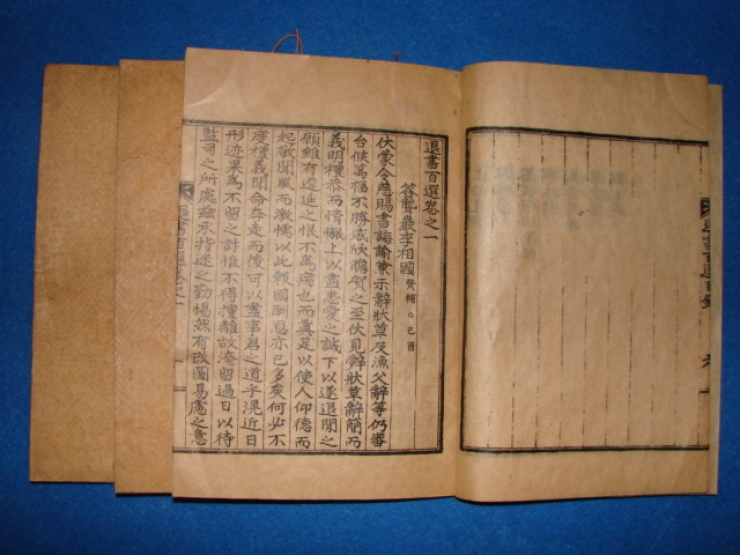 退書百選卷之一
答聾巖李相國 賢輔○己酉
伏蒙令慈賜書誨諭兼示辭狀草及漁父辭等仍審
台候萬福不勝感欣攢賀之至伏見辭狀草辭簡而
義明禮恭而情懇上以盡忠愛之誠下以遂退閒之
願雖有遷延之恨不爲病也而眞足以使人仰德而
起敬聞風而激懦以此報國酬恩亦已多矣何必不
度禮義聞命奔走而後可以盡事君之道乎滉近日
形迹果爲不留之計惟不得擅離故淹留過日以待
監司之所處玆承指迷之勤惕然有改圖易慮之意
退書百選卷之一